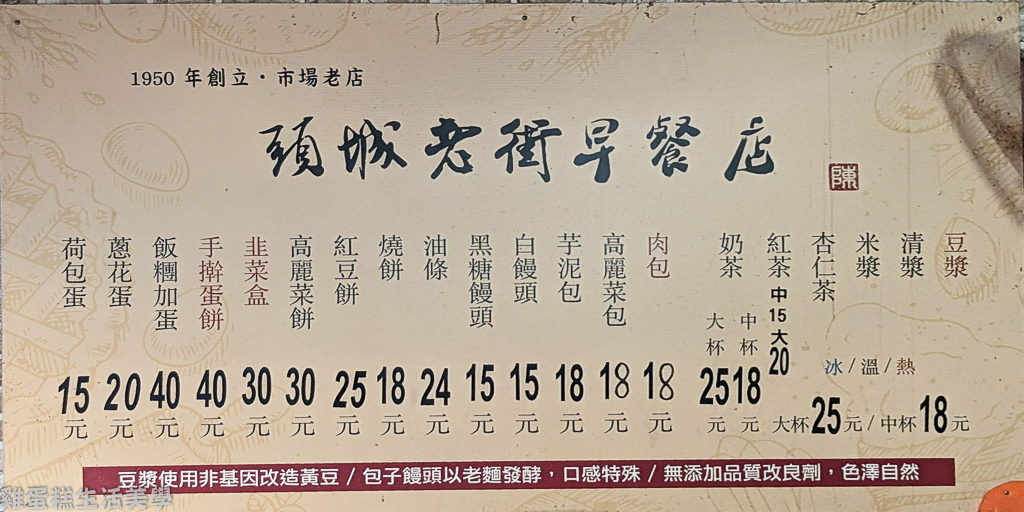 1950 年創立・市場老店
頭城老街早餐店
陳
豆漿
清漿
米漿
杏仁茶
冰/溫/熱
大杯25元/中杯18元
紅茶 中15大20
奶茶
中杯 18元
大杯 25元
肉包 18元
高麗菜包 18元
芋泥包 18元
白饅頭 15元
黑糖饅頭 15元
油條 24元
燒餅 18元
紅豆餅 25元
高麗菜餅 30元
韭菜盒 30元
手擀蛋餅 40元
飯糰加蛋 40元
蔥花蛋 20元
荷包蛋 15元
豆漿使用非基因改造黃豆 / 包子饅頭以老麵發酵，口感特殊 / 無添加品質改良劑，色澤自然
雞蛋糕生活美學